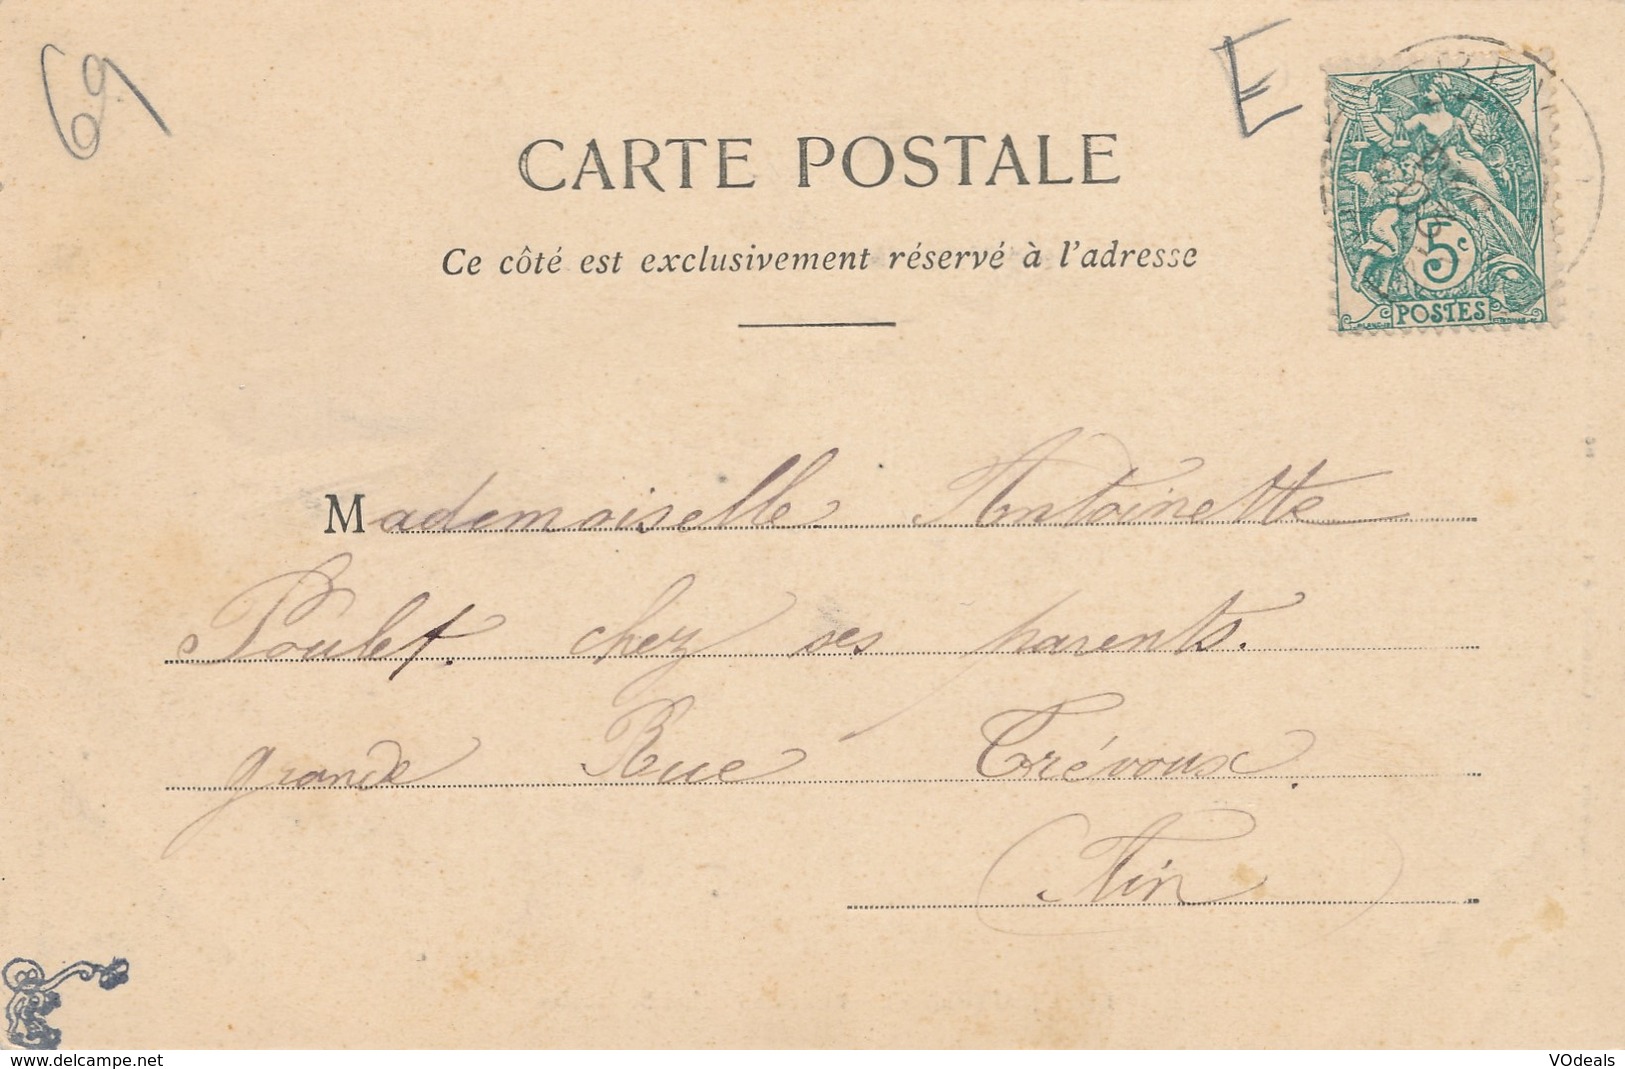 69
E
CARTE POSTALE
Ce côté est exclusivement réservé à l'adresse
5c
POSTES
Mademoiselle Antoinette
Poulet. chez ses parents.
grande Rue Trévoux.
(Ain)
www.delcampe.net
VOdeals